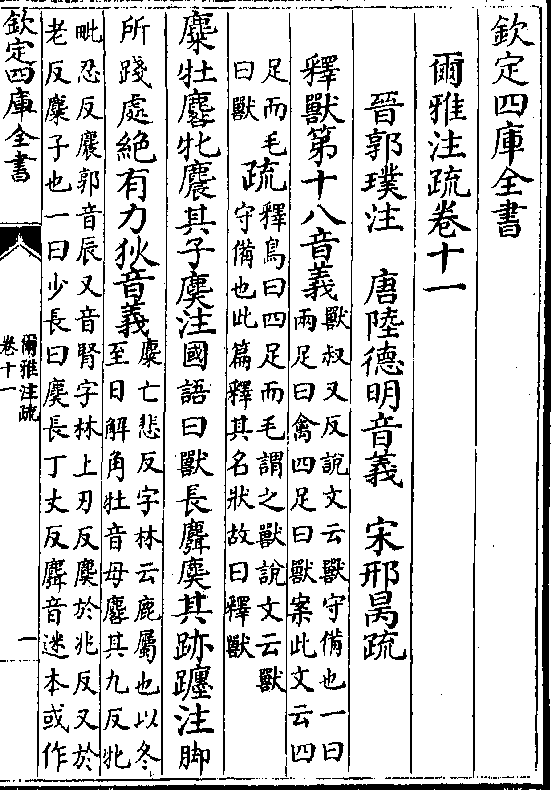 欽定四庫全書
爾雅注疏卷十一
晉郭璞注　唐陸德明音義　宋邢昺疏
釋獸第十八音義
獸叔又反說文云獸守備也一曰
兩足曰禽四足曰獸案此文云四
足而毛
曰獸
疏
釋鳥曰四足而毛謂之獸說文云獸
守備也此篇釋其名狀故曰釋獸
麋牡麔牝麎其子䴠注國語曰獸長麛䴠其跡躔注脚
所踐處絶有力狄音義
麋亡悲反字林云鹿屬也以冬
至日解角牡音母麔其九反牝
毗忍反麎郭音辰又音腎字林上刃反䴠於兆反又於
老反麋子也一曰少長曰䴠長丁丈反麛音迷本或作
欽定四庫全書
爾雅注疏
卷十一
一